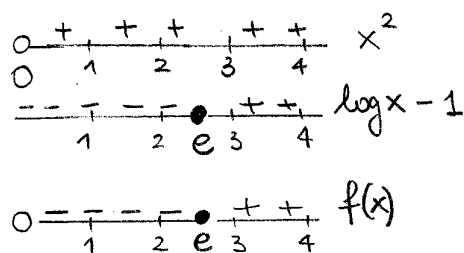 + + + + + x²
1 2 3 4
− − − − − + + log x − 1
1 2 e 3 4
− − − − + + f(x)
1 2 e 3 4